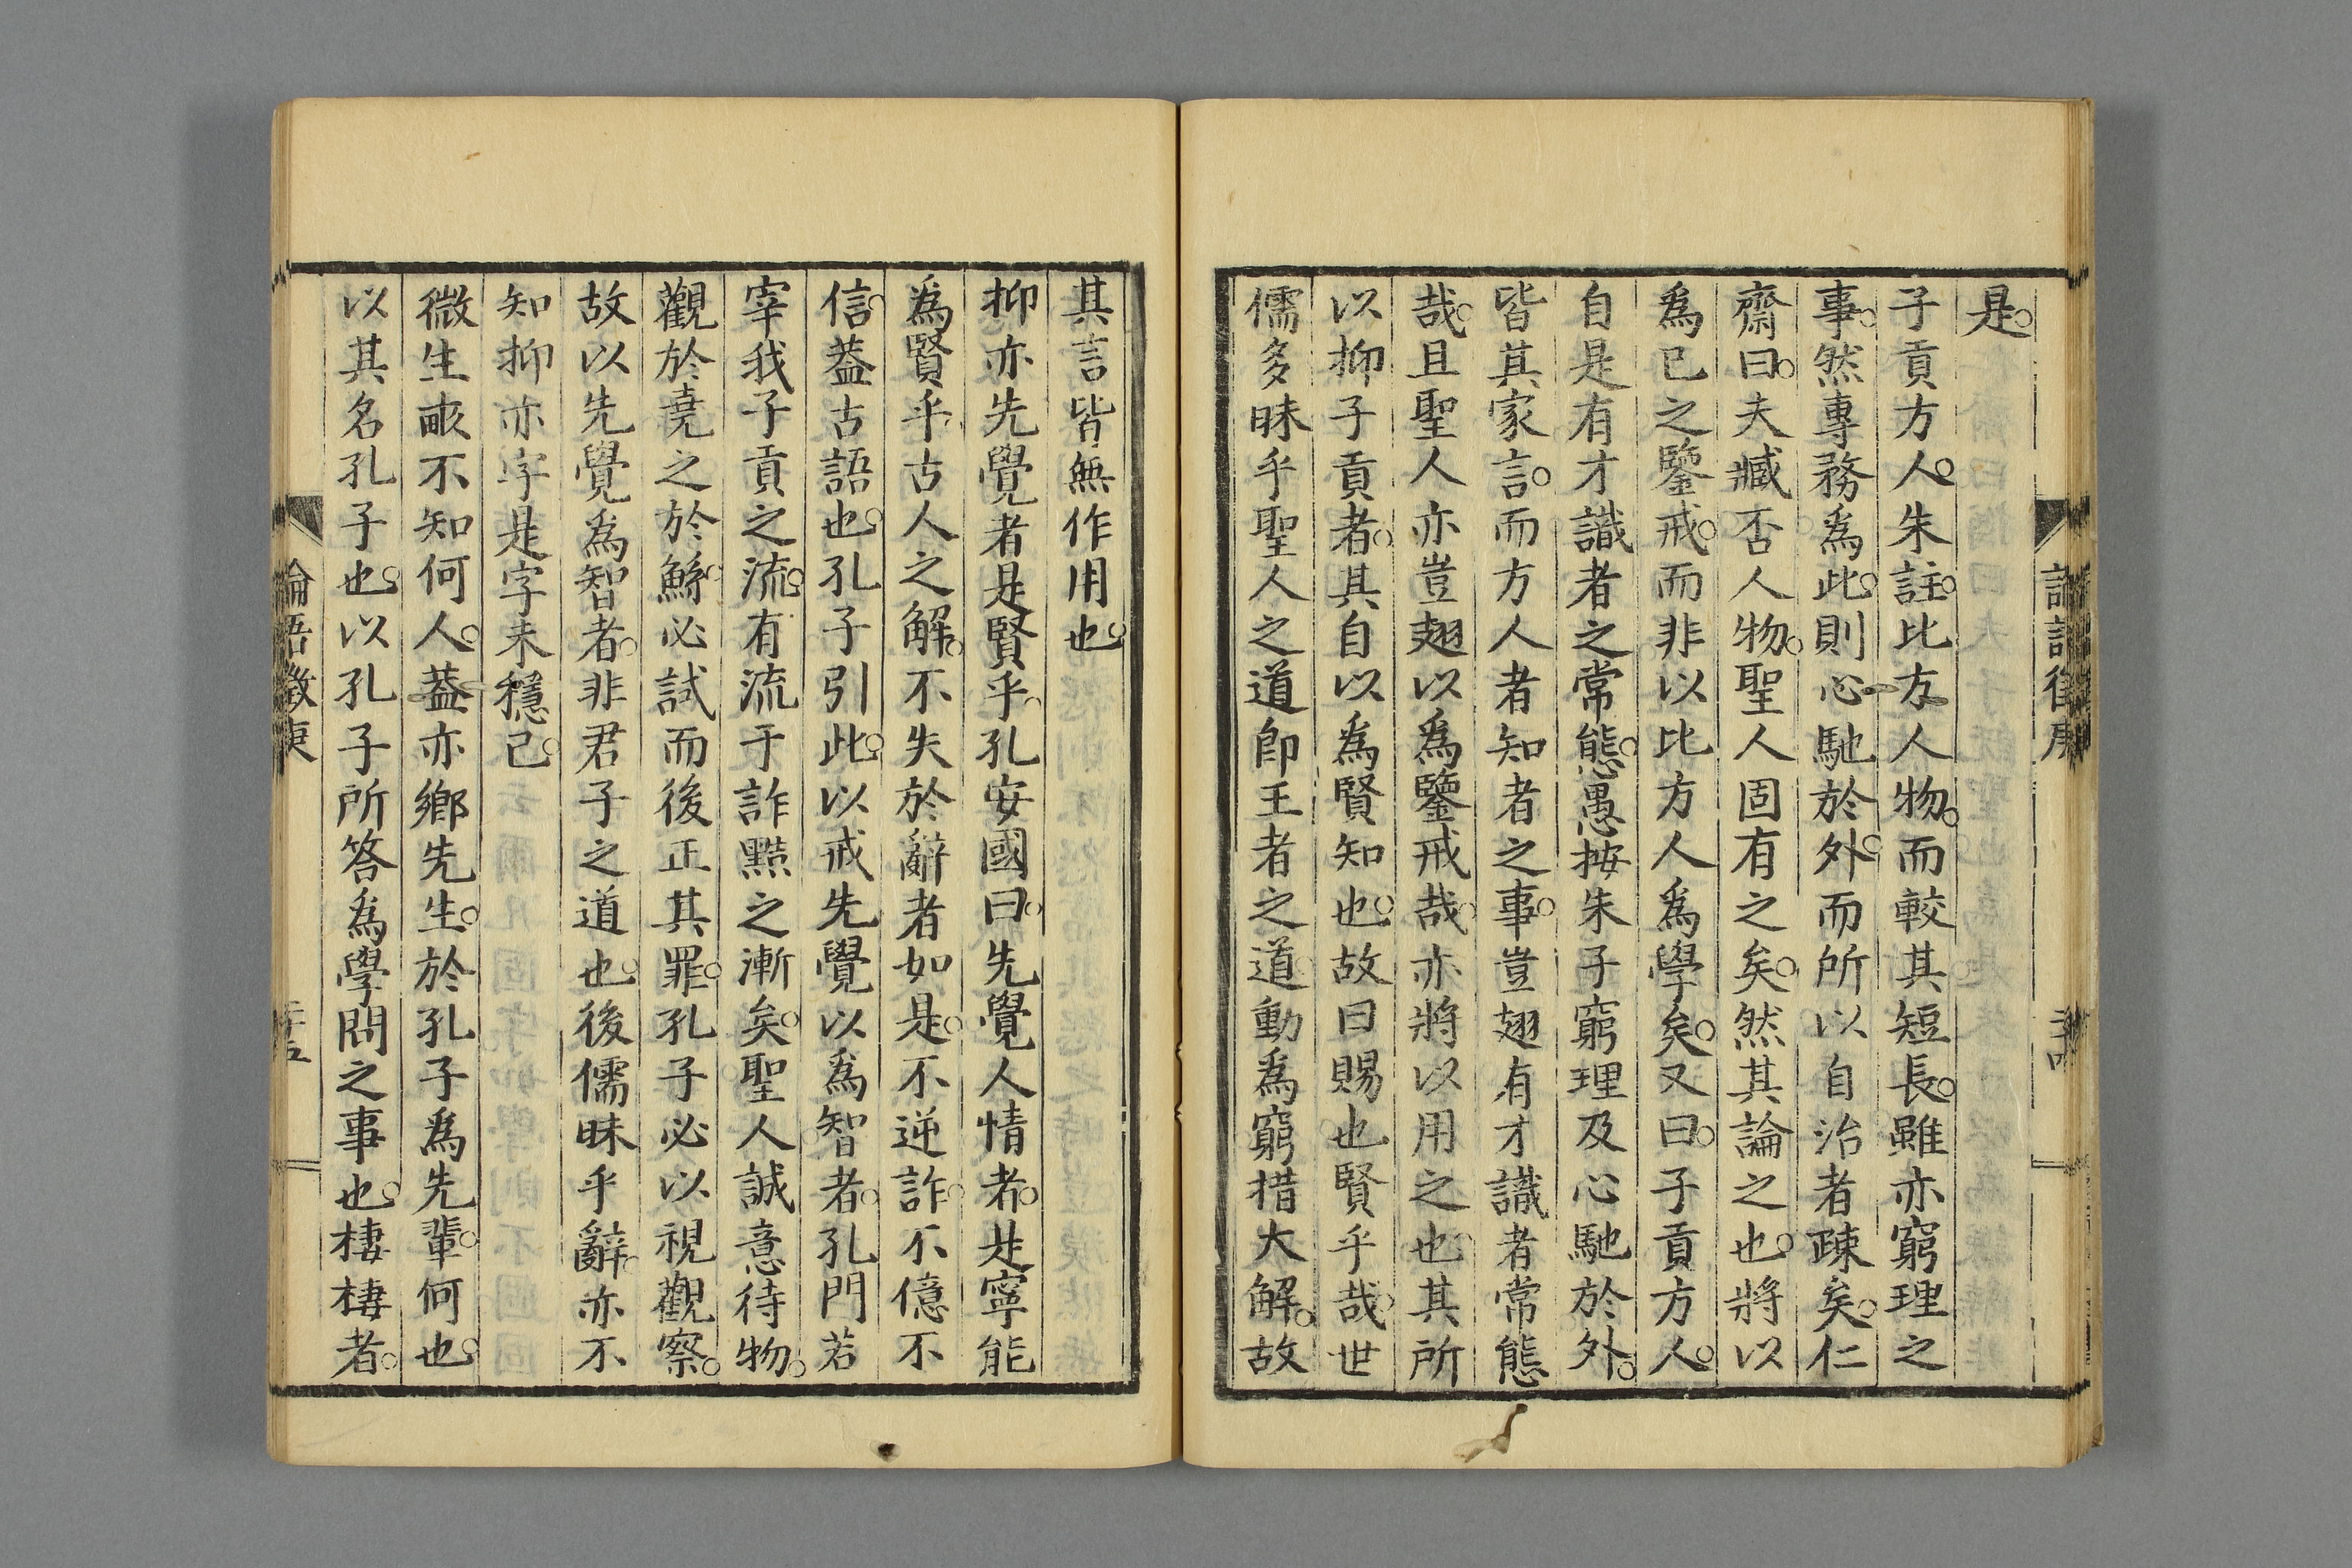 是。
子貢方人。朱註。比方人物。而較其短長。雖亦窮理之
事。然專務爲此。則心馳於外。而所以自治者疎矣。仁
齋曰。夫臧否人物。聖人固有之矣。然其論之也。將以
爲己之鑒戒。而非以比方人爲學矣。又曰。子貢方人。
自是有才識者之常態。愚按朱子窮理及心馳於外。
皆其家言。而方人者知者之事。豈翅有才識者常態
哉。且聖人亦豈翅以爲鑒戒哉。亦將以用之也。其所
以抑子貢者。其自以爲賢知也。故曰賜也賢乎哉。世
儒多昧乎聖人之道卽王者之道。動爲窮措大解。故
其言皆無作用也。
抑亦先覺者是賢乎。孔安國曰。先覺人情者。是寧能
爲賢乎。古人之解。不失於辭者如是。不逆詐。不億不
信。蓋古語也。孔子引此。以戒先覺以爲智者。孔門若
宰我子貢之流。有流于詐黠之漸矣。聖人誠意待物。
觀於堯之於鯀。必試而後正其罪。孔子必以視觀察。
故以先覺爲智者。非君子之道也。後儒昧乎辭。亦不
知抑亦字是字未穩已。
微生畝不知何人。蓋亦鄉先生。於孔子爲先輩。何也。
以其名孔子也。以孔子所答爲學問之事也。棲棲者。
論語徵庚
二十五